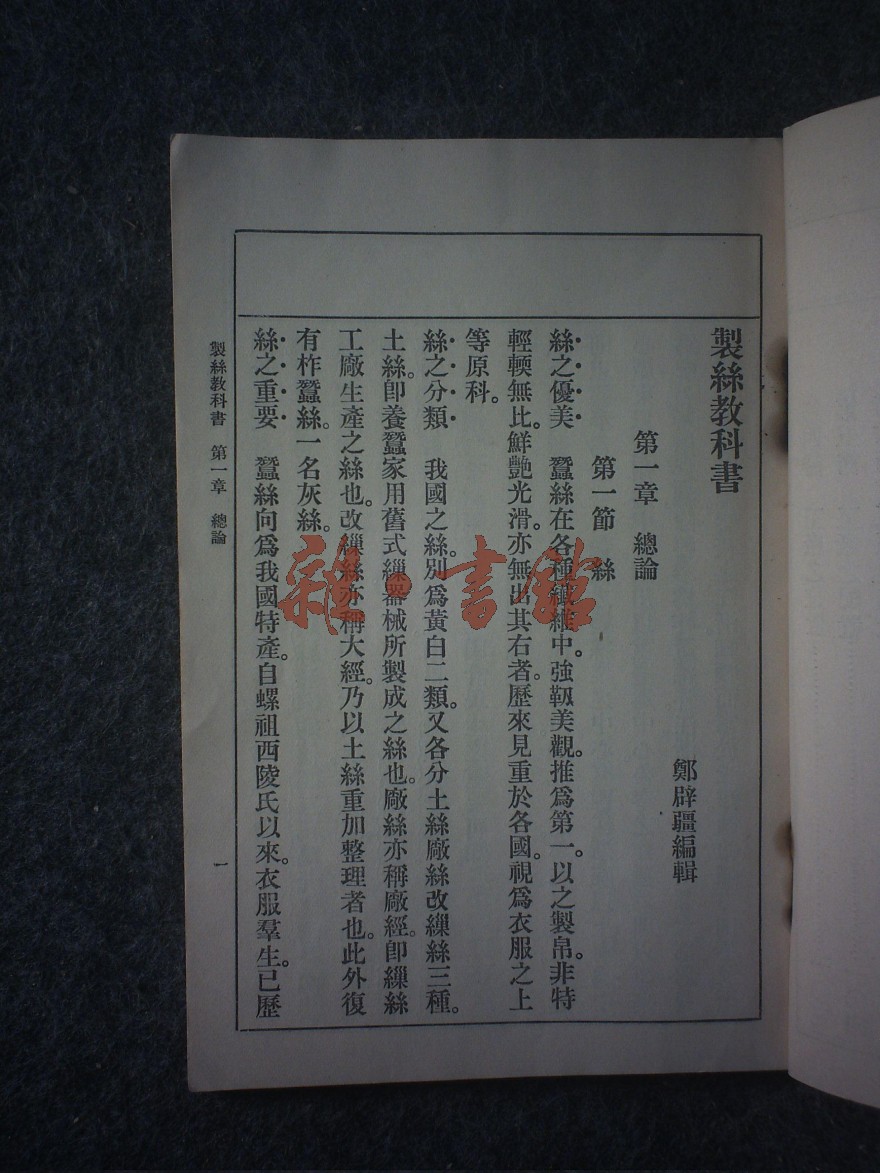 製絲教科書
鄭辟疆編輯
第一章 總論
第一節 絲
絲之優美 蠶絲在各種纖維中。強韌美觀。推爲第一。以之製帛。非特
輕輭無比。鮮艷光滑。亦無出其右者。歷來見重於各國。視爲衣服之上
等原科。
絲之分類 我國之絲。別爲黃白二類。又各分土絲廠絲改繅絲三種。
土絲。卽養蠶家用舊式繅器械所製成之絲也。廠絲亦稱廠經。卽繅絲
工廠生產之絲也。改繅絲亦稱大經。乃以土絲重加整理者也。此外復
有柞蠶絲。一名灰絲。
絲之重要 蠶絲向爲我國特產。自螺祖西陵氏以來。衣服羣生。已歷
製絲教科書 第一章 總論
一
雜·書館